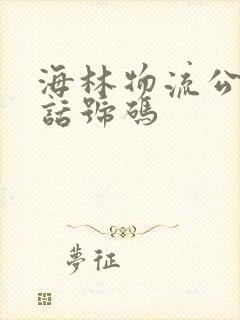 海林物流公
話號碼
夢征